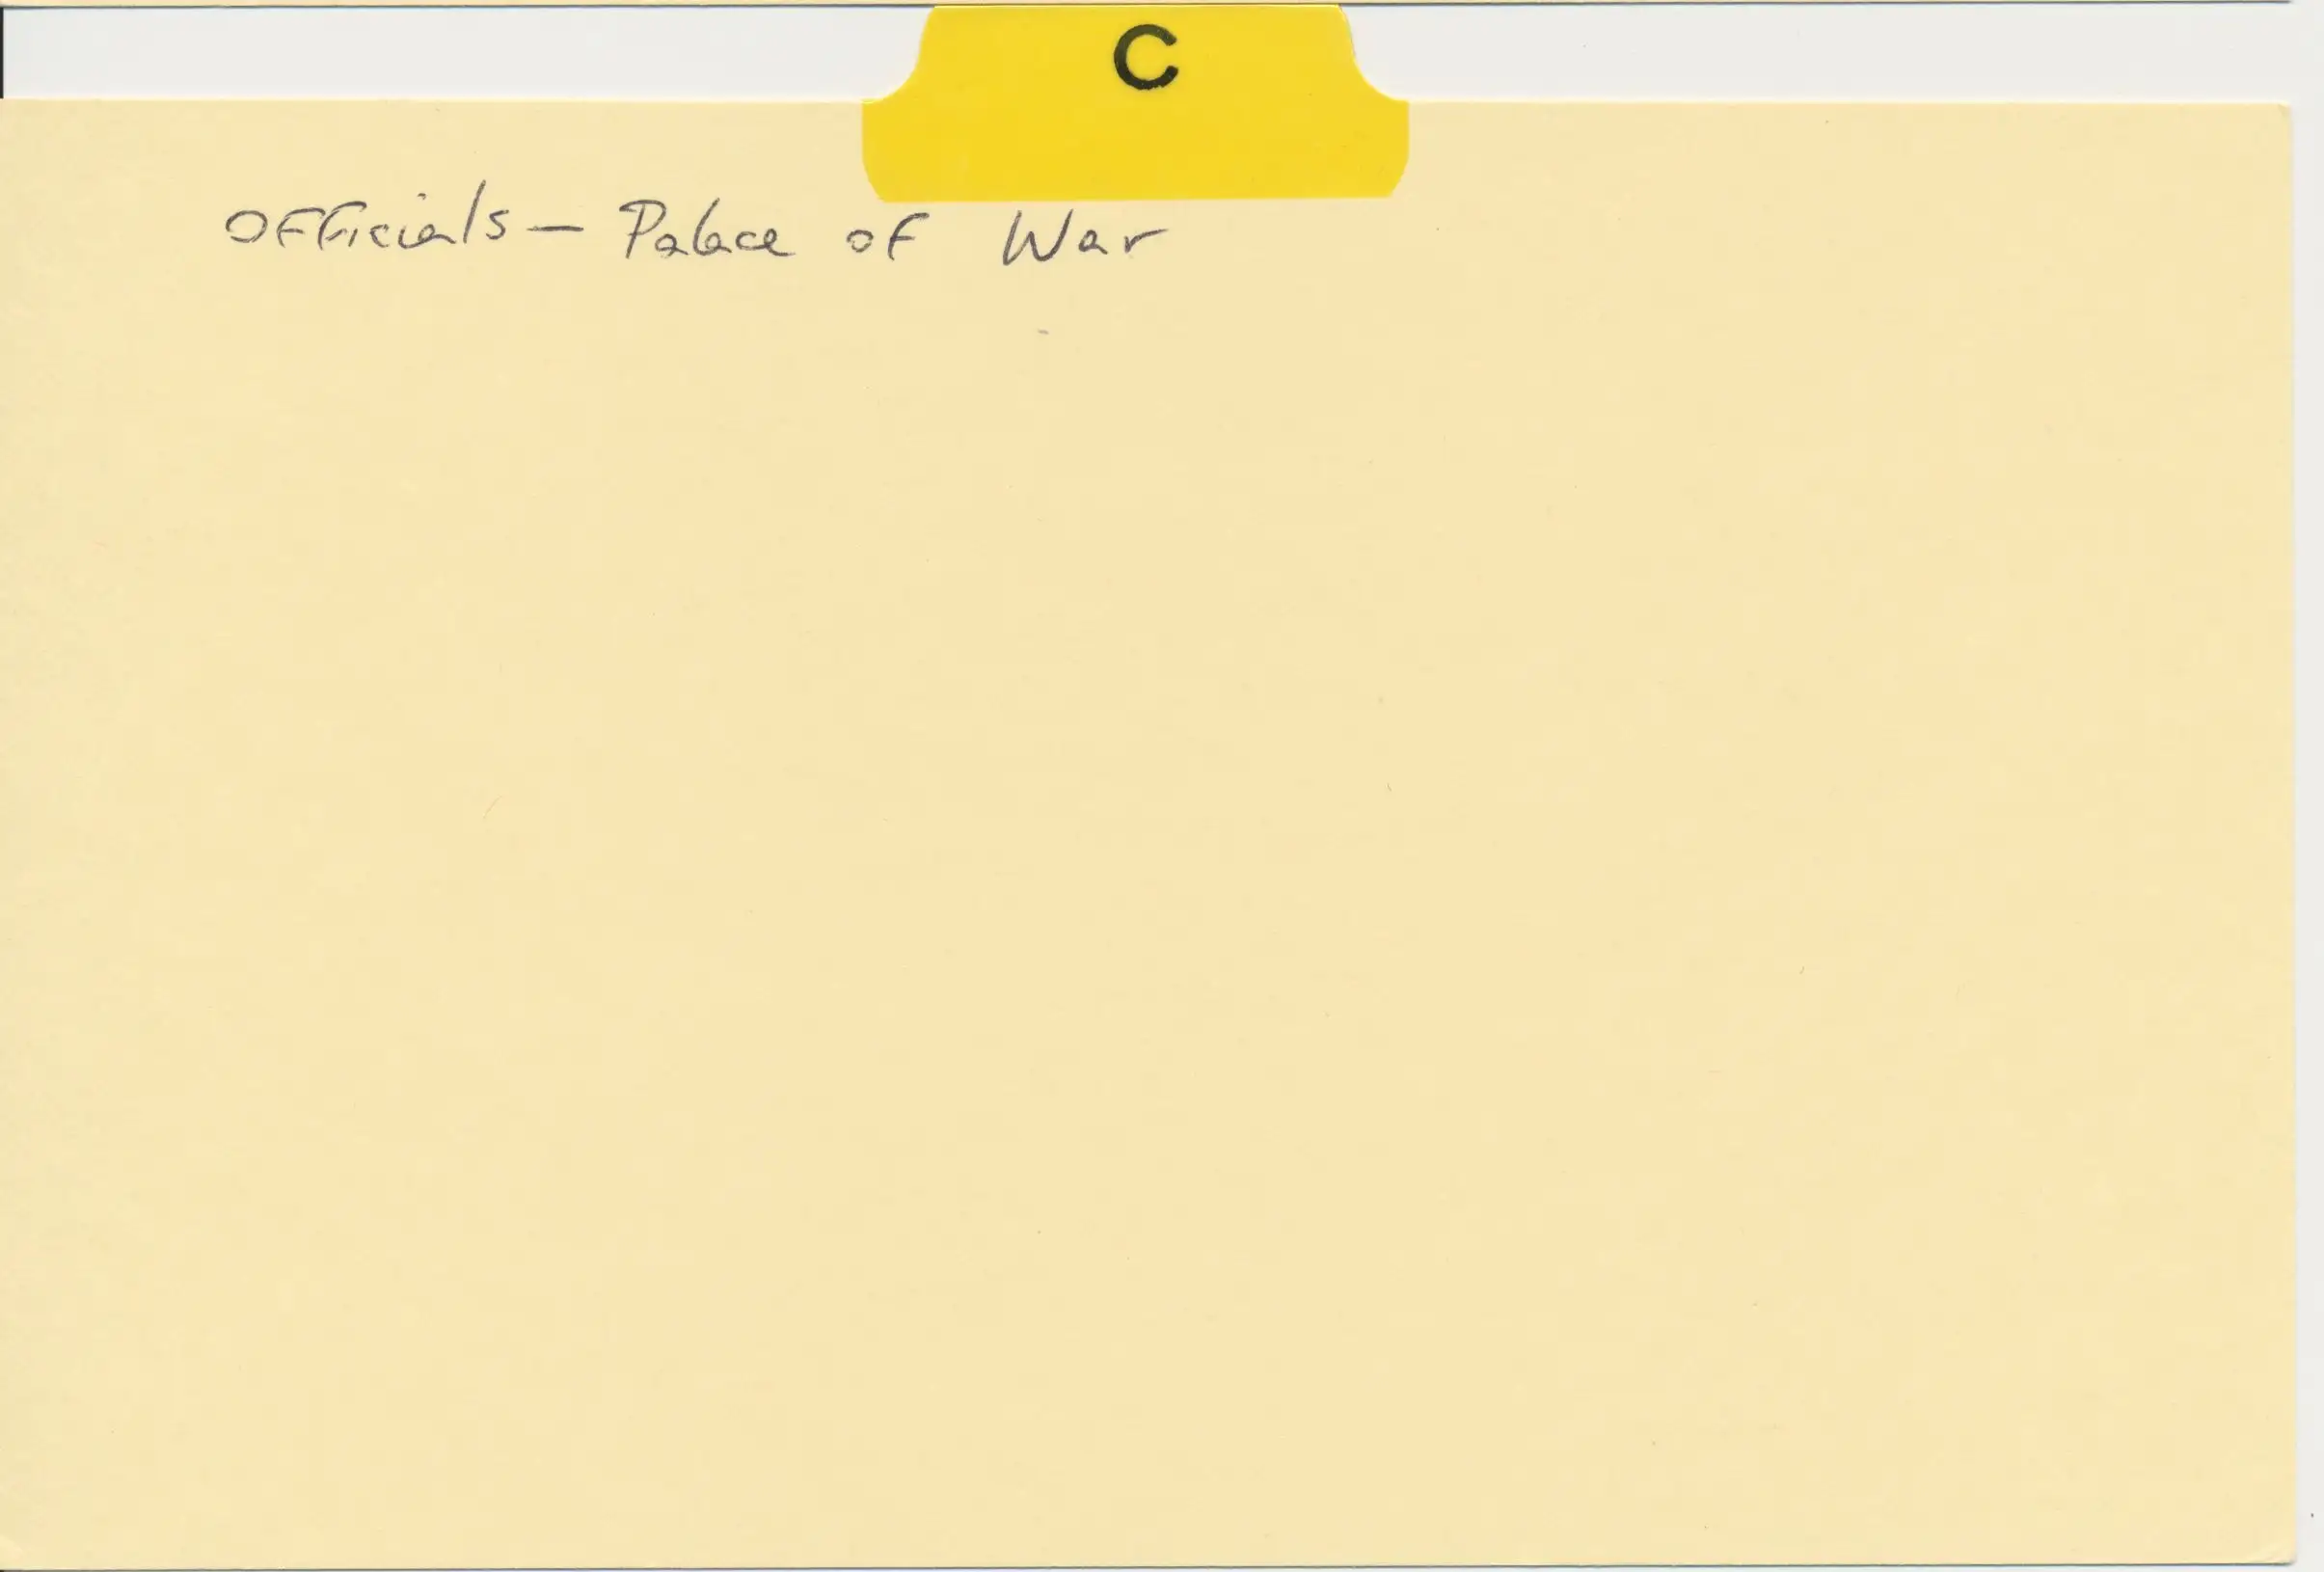 C
Officials — Palace of War